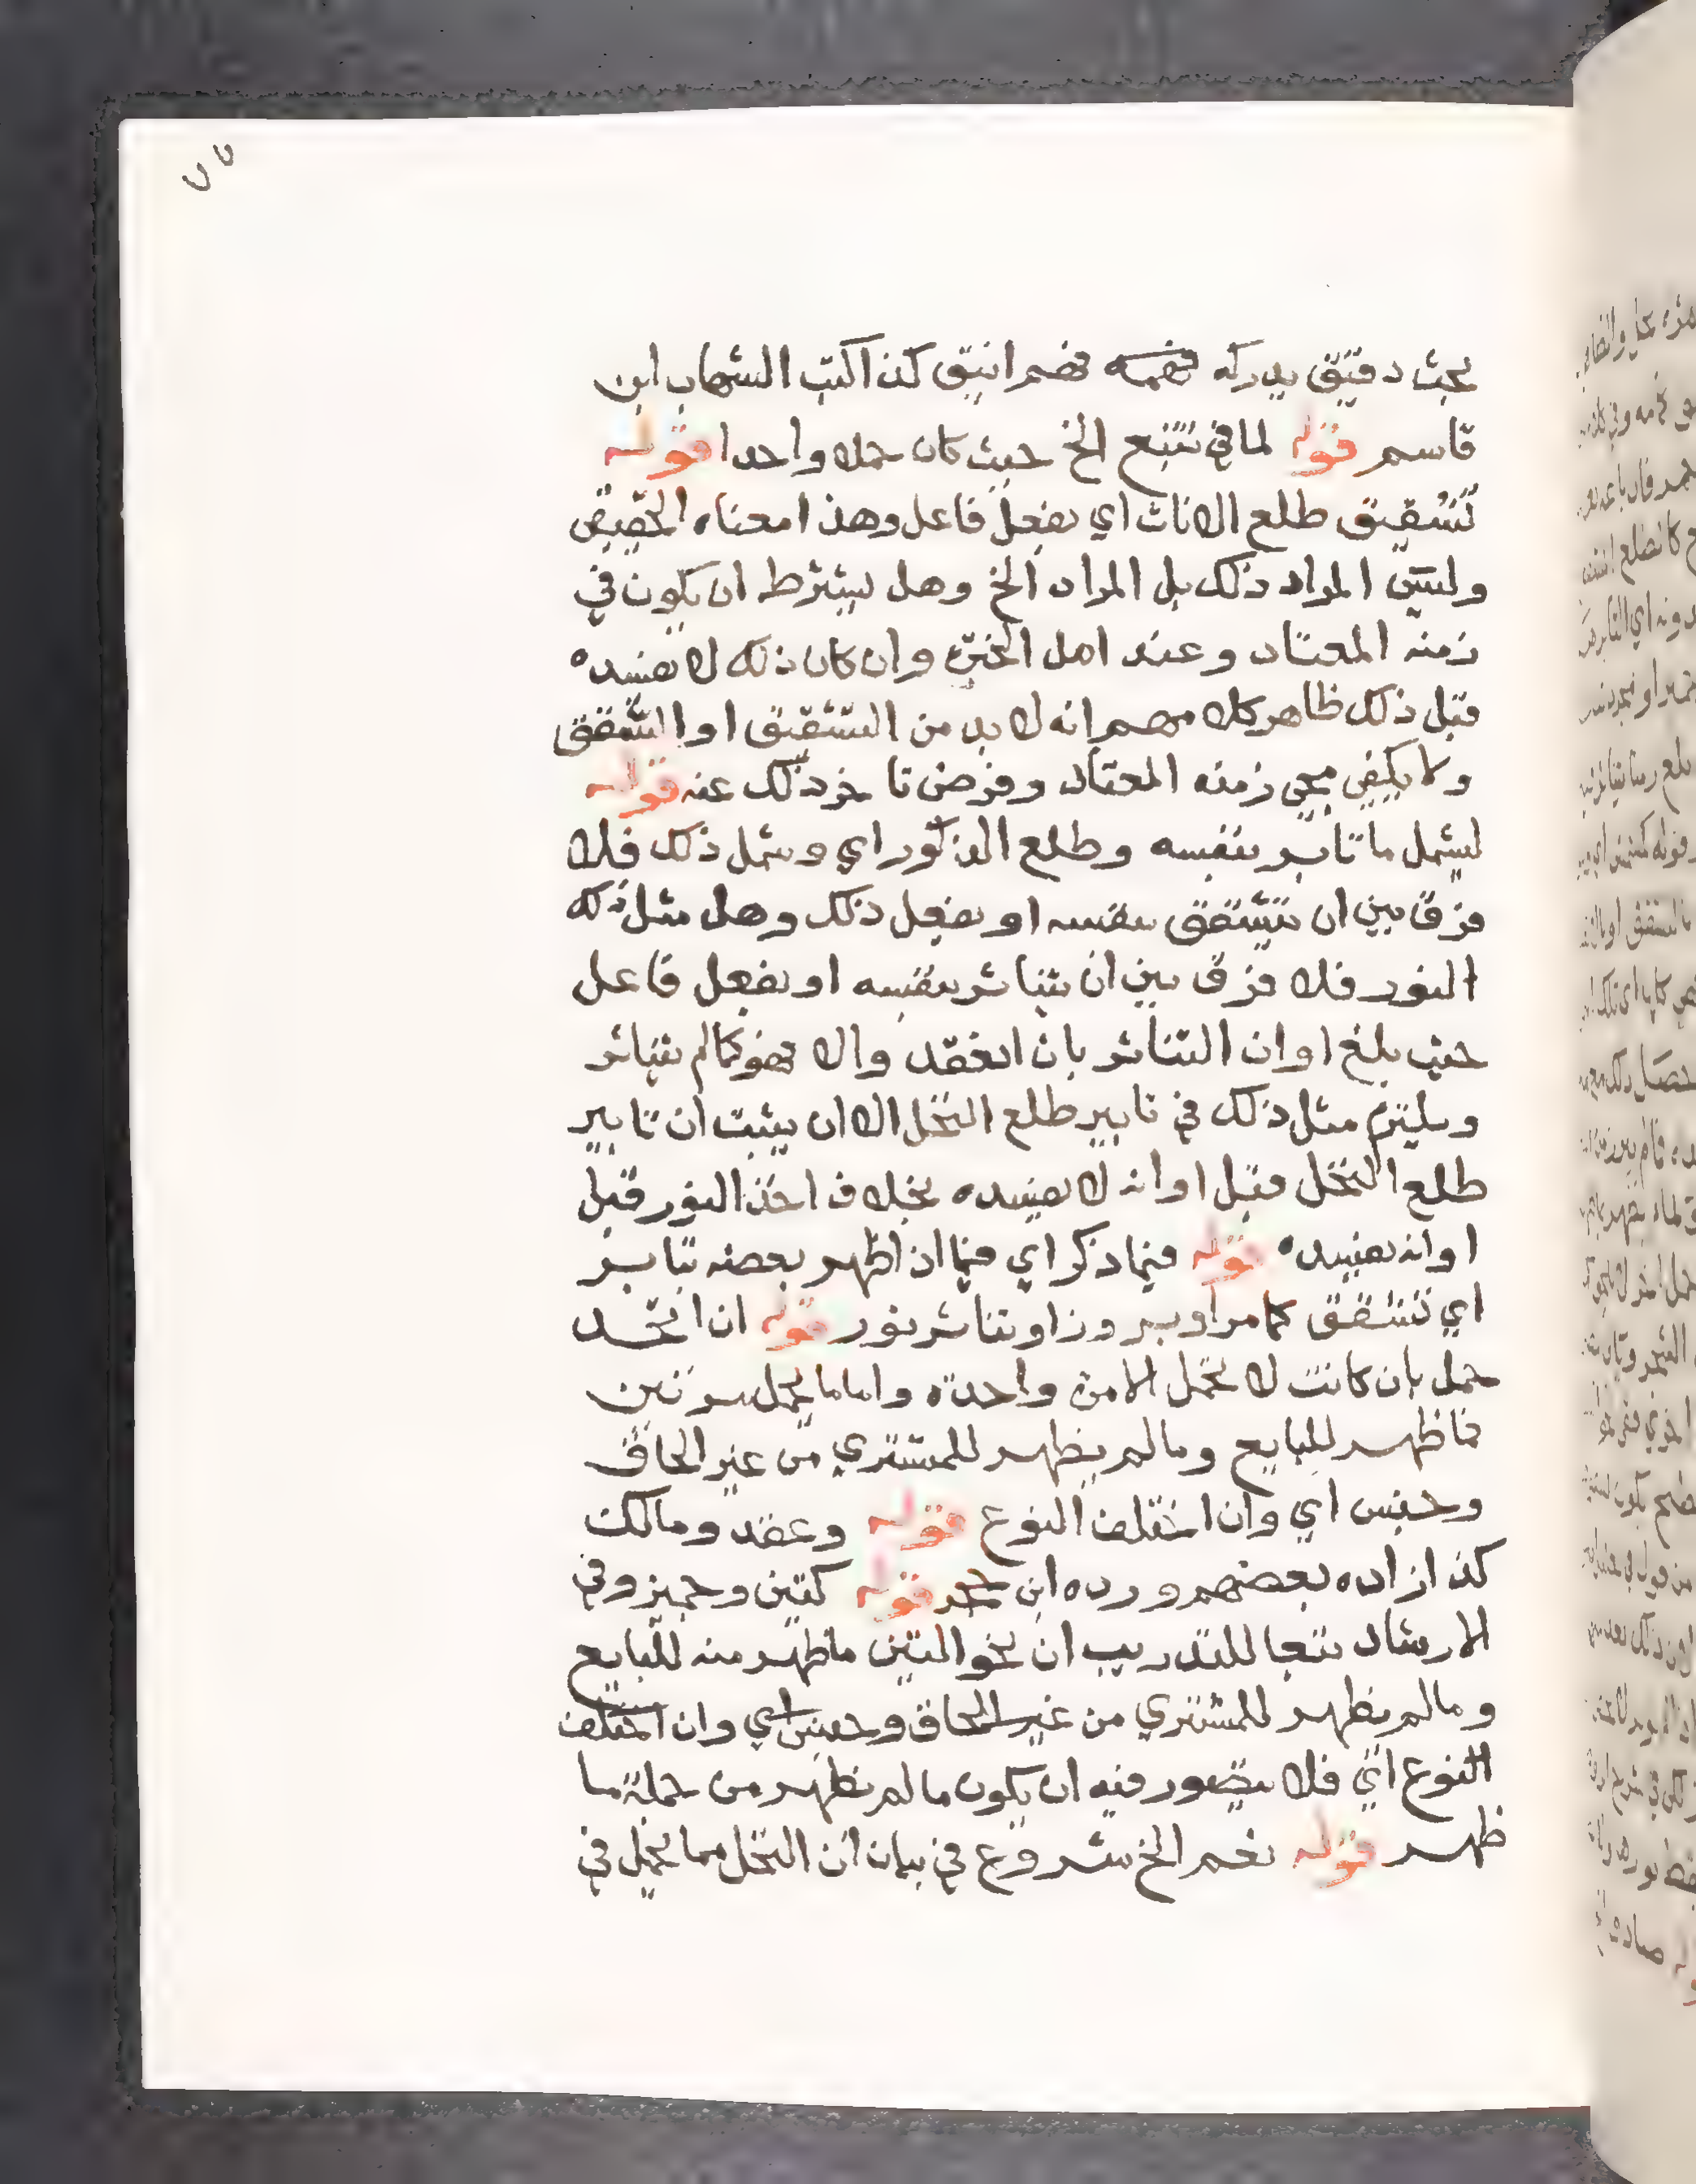 بحث دقيق يدركه فهمه فهم انيق كذا كتب الشهاب ابن
قاسم قوله لما في تتبع الخ حيث كان حمله واحدا قوله
تشقيق طلع الاناث اي بفعل فاعل وهذا معناه الحقيقي
وليس المراد ذلك بل المراد الخ وهل يشترط ان يكون في
زمنه المعتاد وعند اهل الخبرة وان كان ذلك لا يفسده
قبل ذلك ظاهر كلامهم انه لا بد من التشقيق او التشقق
ولا يكفي مجي زمنه المعتاد وفرض تاخر ذلك عنه قوله
ليشمل ما تابر بنفسه وطلع الذكور اي وشمل ذلك فلا
فرق بين ان يتشقق بنفسه او بفعل ذلك وهل مثل ذلك
النور فلا فرق بين ان يتناثر بنفسه او بفعل فاعل
حيث بلغ اوان التناثر بان انعقد والا فهو كما لم يتناثر
ويلتزم مثل ذلك في تابير طلع النخل الا ان يثبت ان تابير
طلع النخل قبل اوانه لا يفسده بخلاف اخذ النور قبل
اوانه يفسده قوله فيما ذكر اي فيما اذا ظهر بعضه بتابر
اي تشقق كما مر او ببروز او بتناثر نور قوله ان اتحد
حمل بان كانت لا تحمل الا مرة واحدة واما ما يحمل مرتين
فما ظهر للبايع وما لم يظهر للمشتري من غير الحاق
وجنس اي وان اختلف النوع قوله وعقد ومالك
كذا زاده بعضهم ورده ابن حجر قوله كتين وجميز وفي
الارشاد تبعا للتدريب ان نحو التين ما ظهر منه للبايع
وما لم يظهر للمشتري من غير الحاق وجنس اي وان اختلف
النوع اتي فلا يتصور فيه ان يكون ما لم يظهر من جملة ما
ظهر قوله نعم الخ شروع في بيان ان النخل مما يحمل في